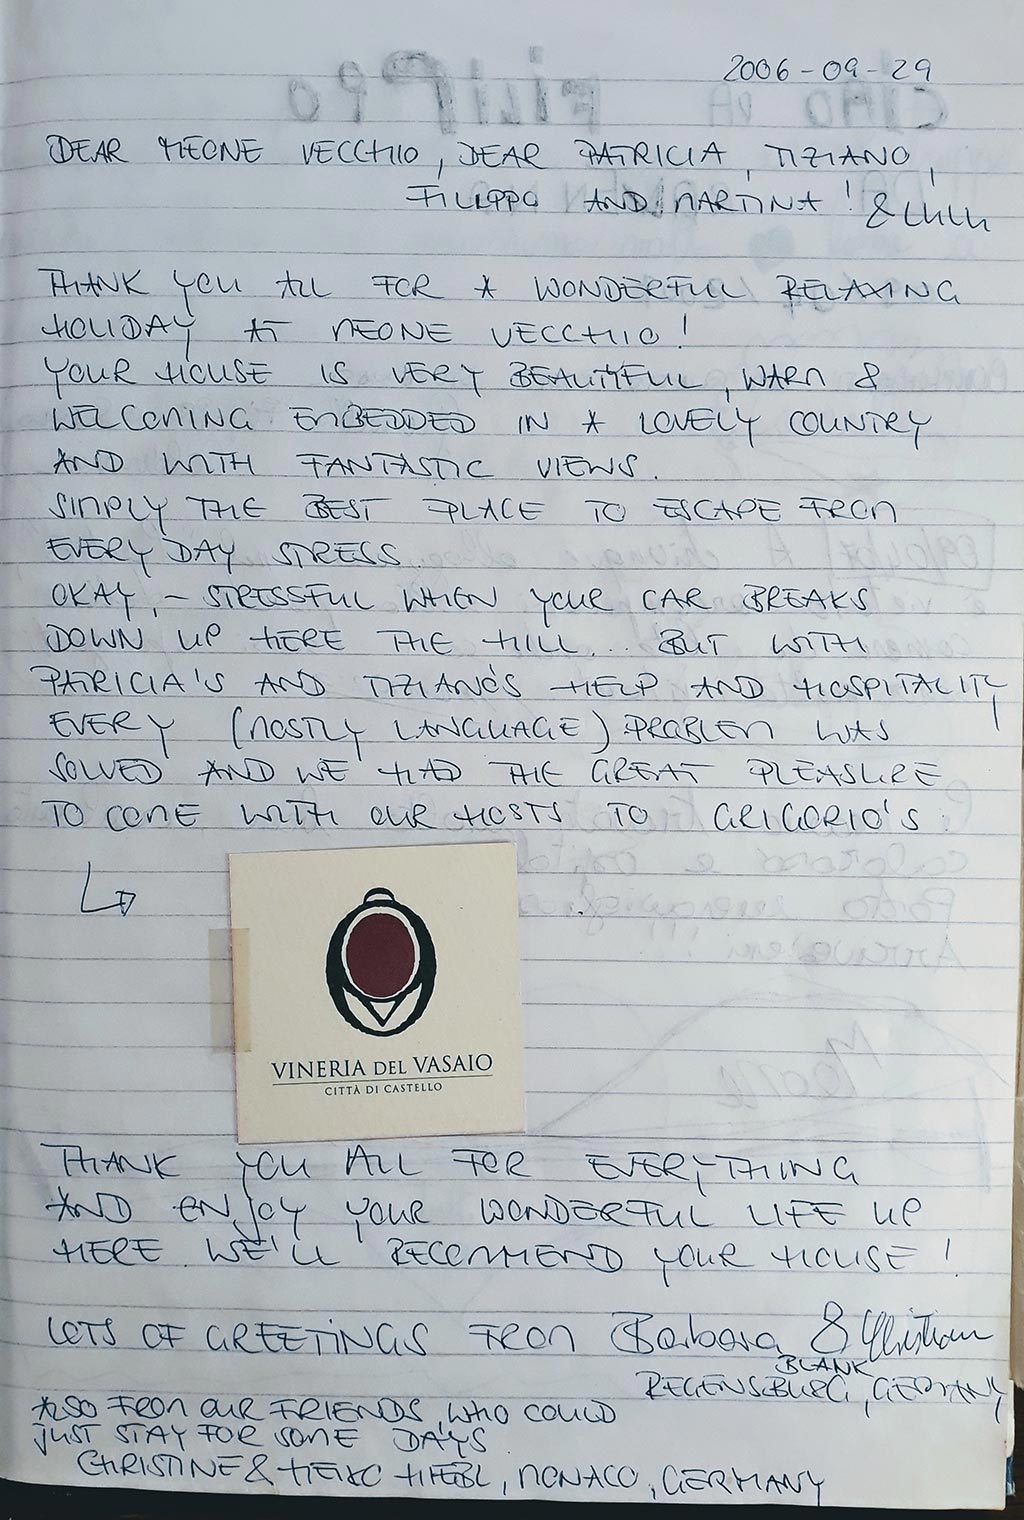 2006-09-29
DEAR MEONE VECCHIO, DEAR PATRICIA, TIZIANO,
FILIPPO AND MARTINA! & LULU
THANK YOU ALL FOR A WONDERFUL RELAXING
HOLIDAY AT MEONE VECCHIO!
YOUR HOUSE IS VERY BEAUTIFUL, WARM &
WELCOMING EMBEDDED IN A LOVELY COUNTRY
AND WITH FANTASTIC VIEWS.
SIMPLY THE BEST PLACE TO ESCAPE FROM
EVERY DAY STRESS.
OKAY, - STRESSFUL WHEN YOUR CAR BREAKS
DOWN UP HERE THE HILL... BUT WITH
PATRICIA'S AND TIZIANO'S HELP AND HOSPITALITY
EVERY (MOSTLY LANGUAGE) PROBLEM WAS
SOLVED AND WE HAD THE GREAT PLEASURE
TO COME WITH OUR HOSTS TO GRIGORIO'S:
VINERIA DEL VASAIO
CITTÀ DI CASTELLO
THANK YOU ALL FOR EVERYTHING
AND ENJOY YOUR WONDERFUL LIFE UP
HERE. WE'LL RECOMMEND YOUR HOUSE!
LOTS OF GREETINGS FROM Barbara & Christian
BLANK
REGENSBURG, GERMANY
ALSO FROM OUR FRIENDS, WHO COULD
JUST STAY FOR SOME DAYS
CHRISTINE & HEIKO HIEBL, MONACO, GERMANY